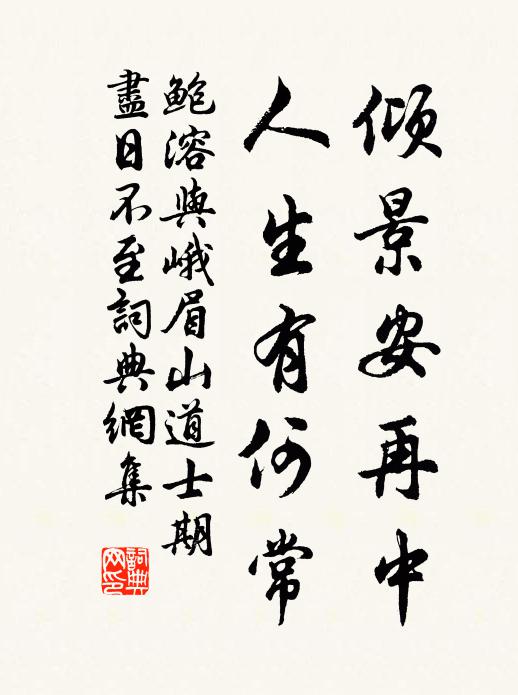 傾景安再中
人生有何常
鮑溶與峨眉山道士期
盡日不至詞典網集
詞典
网印